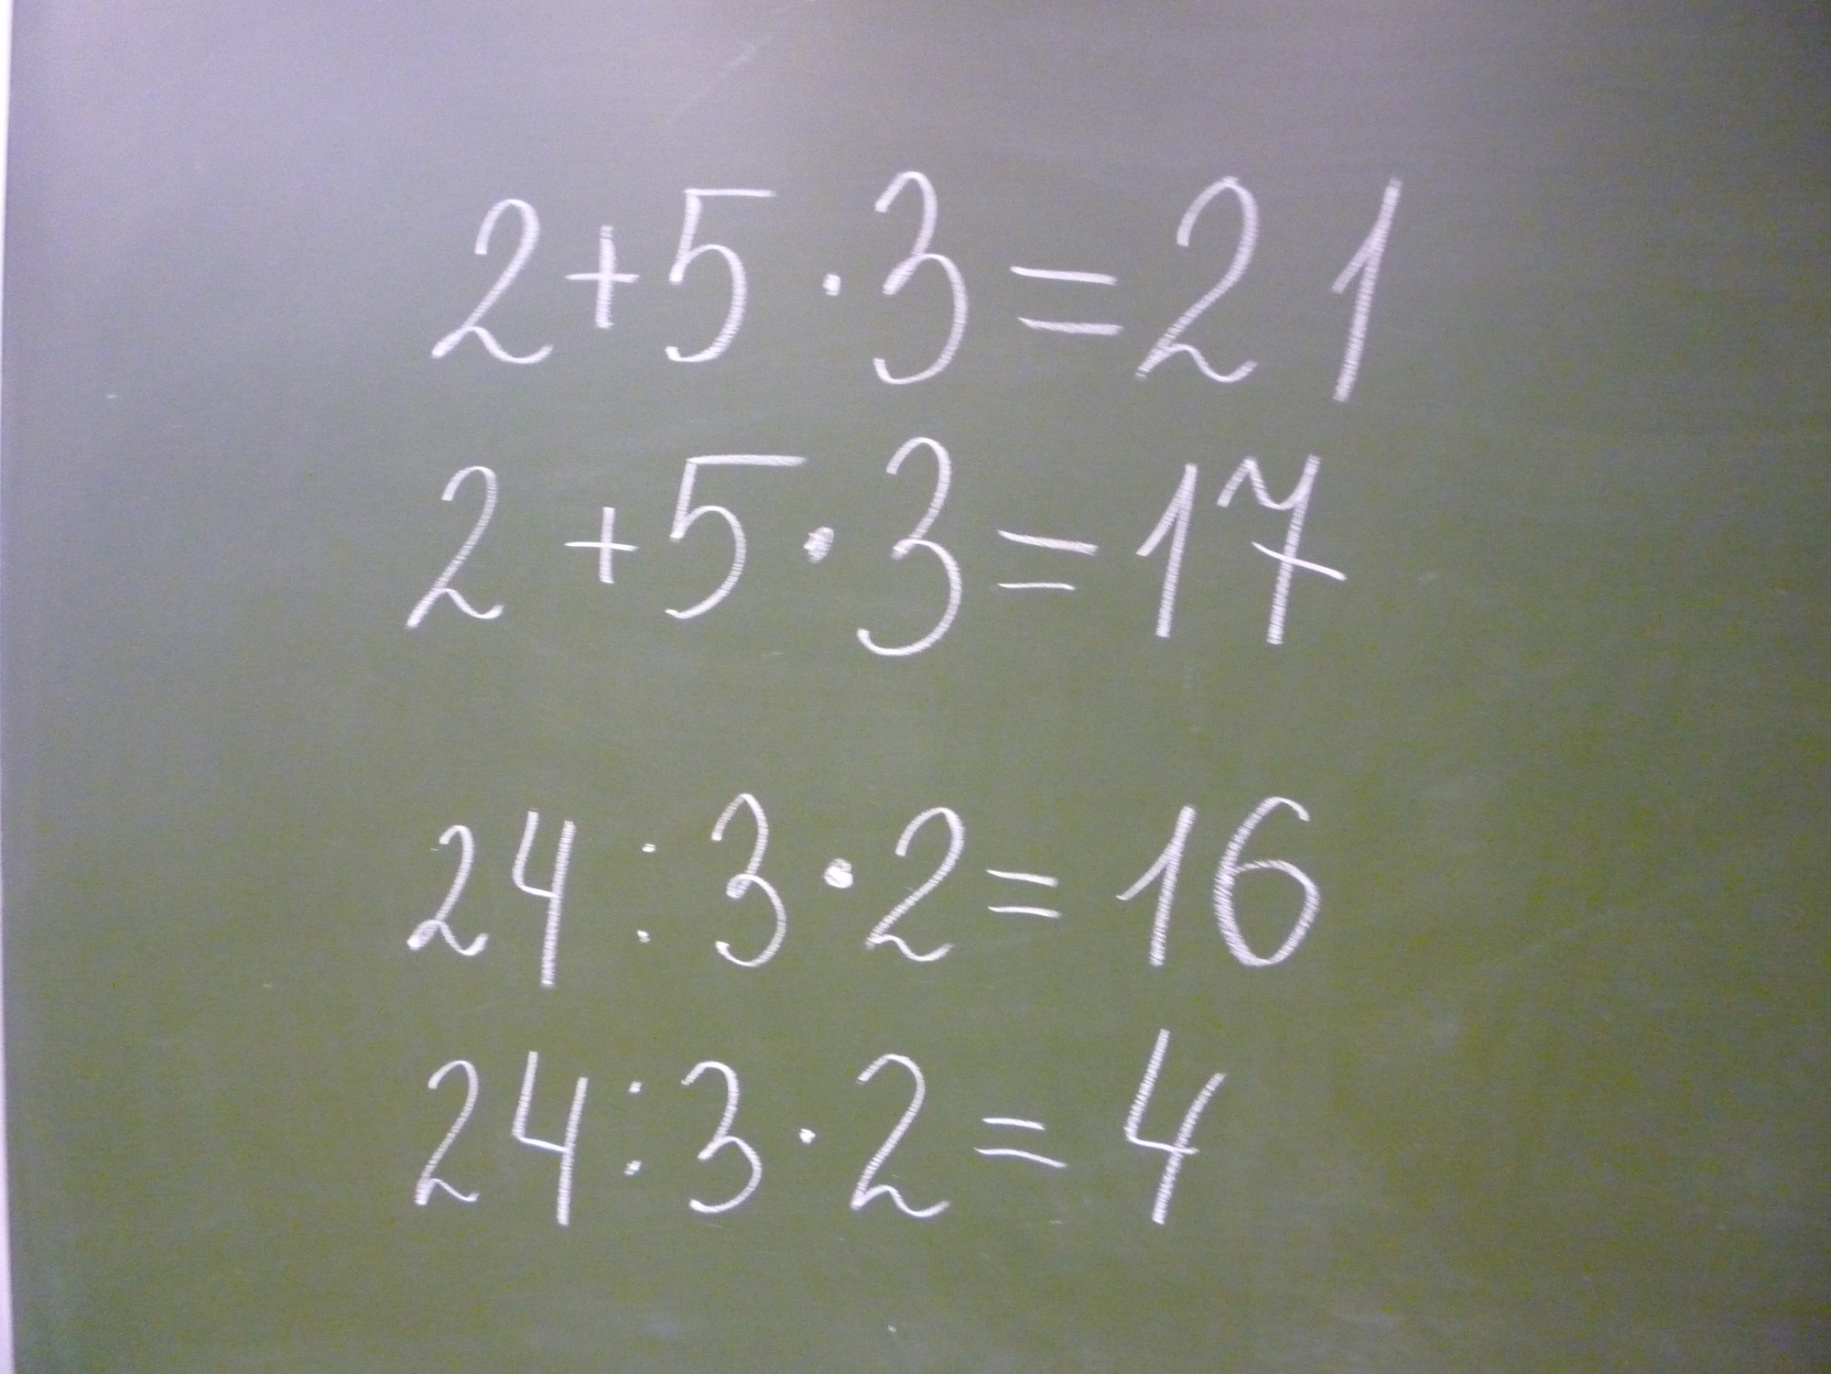 2+5·3=21
2+5·3=17
24:3·2=16
24:3·2=4